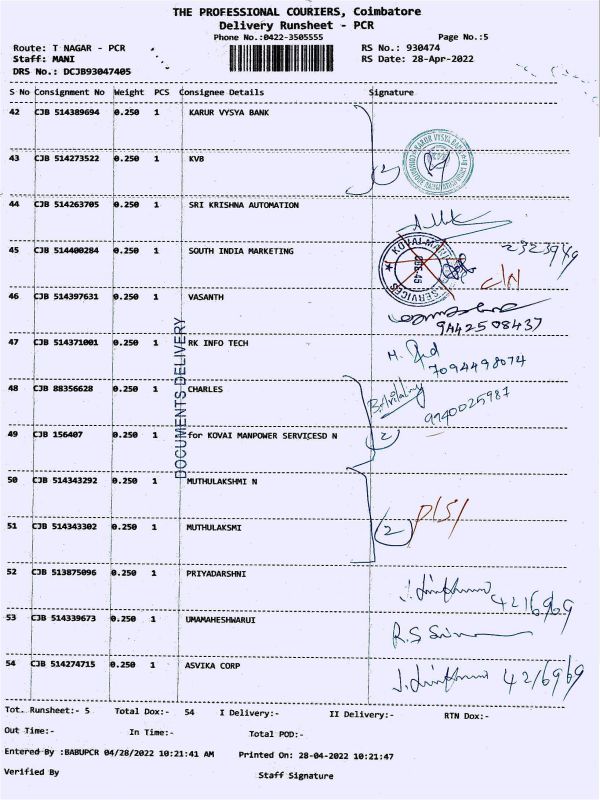 THE PROFESSIONAL COURIERS, Coimbatore
Delivery Runsheet - PCR
Phone No.:0422-3505555 Page No.:5
Route: T NAGAR - PCR RS No.: 930474
Staff: MANI RS Date: 28-Apr-2022
DRS No.: DCJB93047405
S No Consignment No Weight PCS Consignee Details Signature
42 CJB 514389694 0.250 1 KARUR VYSYA BANK
43 CJB 514273522 0.250 1 KVB
2
44 CJB 514263705 0.250 1 SRI KRISHNA AUTOMATION
45 CJB 514400284 0.250 1 SOUTH INDIA MARKETING
2323949
C/N
46 CJB 514397631 0.250 1 VASANTH
9442508437
47 CJB 514371001 0.250 1 RK INFO TECH
7094498074
DOCUMENTS DELIVERY
48 CJB 88356628 0.250 1 CHARLES
9940025987
49 CJB 156407 0.250 1 for KOVAI MANPOWER SERVICESD N
2
50 CJB 514343292 0.250 1 MUTHULAKSHMI N
51 CJB 514343302 0.250 1 MUTHULAKSMI
2
52 CJB 513875096 0.250 1 PRIYADARSHNI
4216969
53 CJB 514339673 0.250 1 UMAMAHESHWARUI
54 CJB 514274715 0.250 1 ASVIKA CORP
4216969
Tot. Runsheet:- 5 Total Dox:- 54 I Delivery:- II Delivery:- RTN Dox:-
Out Time:- In Time:- Total POD:-
Entered By :BABUPCR 04/28/2022 10:21:41 AM Printed On: 28-04-2022 10:21:47
Verified By Staff Signature